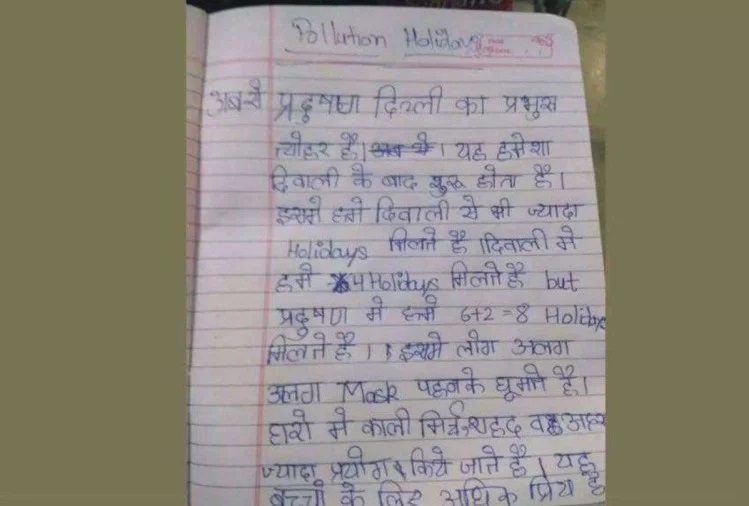 Pollution Holidays
अबसे प्रदुषण दिल्ली का प्रमुख
त्योहर है। अब से। यह हमेशा
दिवाली के बाद शुरू होता है।
इसमे हमे दिवाली से भी ज्यादा
Holidays मिलते है। दिवाली मे
हमे 4 Holidays मिलते है but
प्रदुषण मे हमे 6+2=8 Holidays
मिलते है। इसमे लोग अलग
अलग Mask पहनके घूमते है।
घरो मे काली मिर्च, शहद व
ज्यादा प्रयोग किये जाते है। यह
बच्चो के लिए अधिक प्रिय है